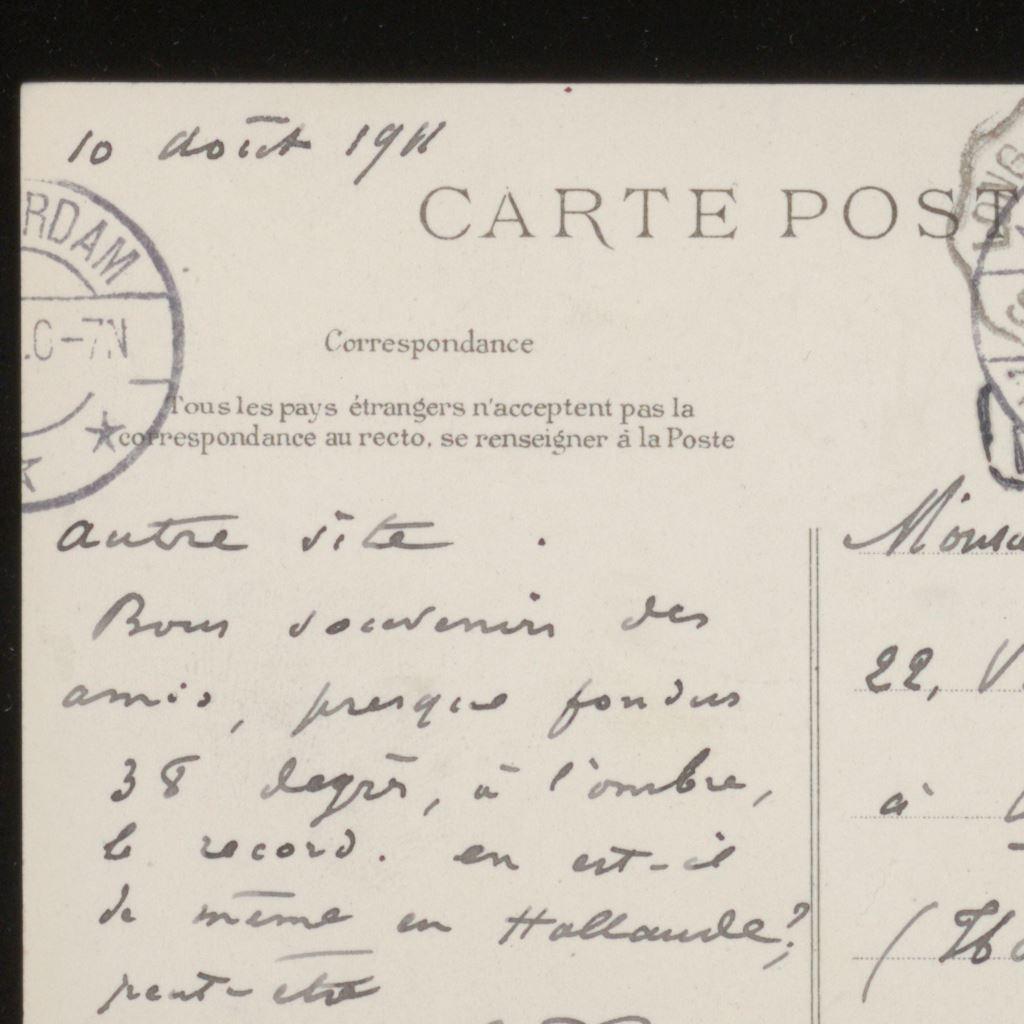 10 août 1911
CARTE POST
RDAM
.0-7N
LONG
Correspondance
Tous les pays étrangers n'acceptent pas la
correspondance au recto, se renseigner à la Poste
autre site.
Bons souvenirs des
amis, presque fondus
38 degrés, à l'ombre,
le record. en est-il
de même en Hollande?
peut-être
22, V
à
(Ho